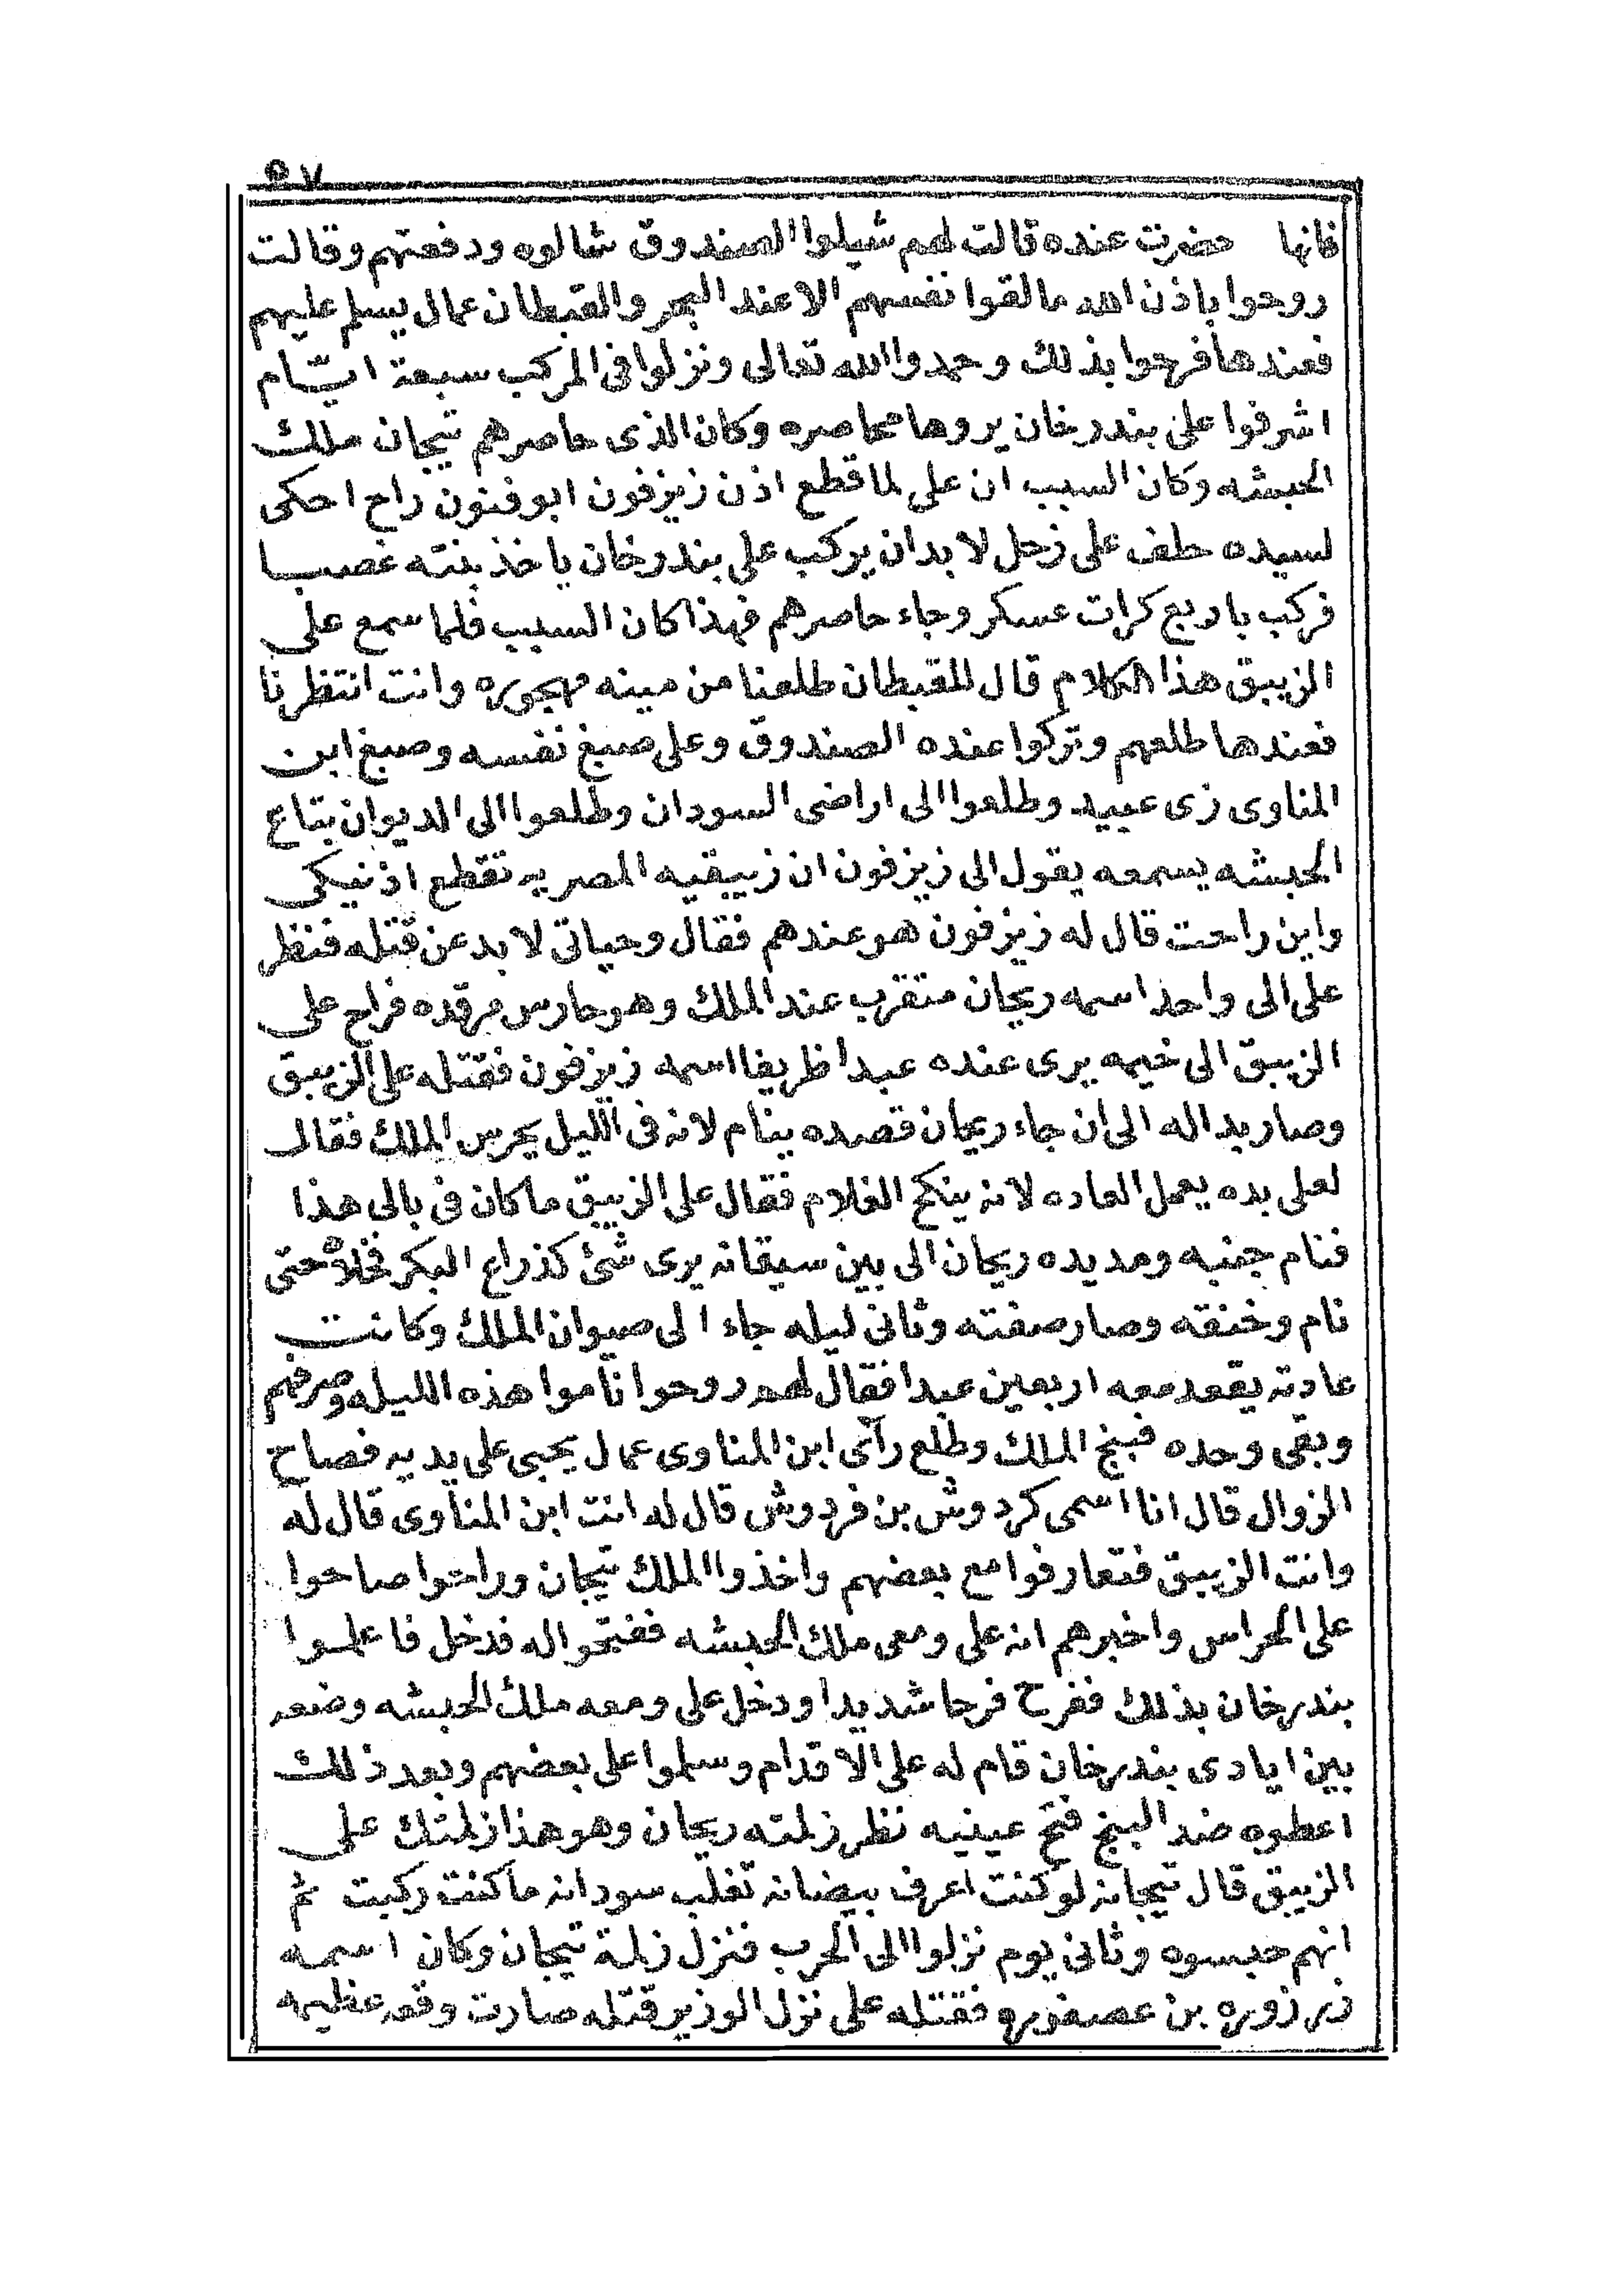 ٥٧
فانها حضرت عنده قالت لهم شيلوا الصندوق شالوه ودفعتهم وقالت
روحوا باذن الله مالقوا نفسهم الا عند البحر والقبطان عمال يسلم عليهم
فعندها فرحوا بذلك وحمدوا الله تعالى ونزلوا فى المركب سبعة ايام
اشرفوا على بندرخان يروها محاصره وكان الذى حاصرهم تيجان ملك
الحبشه وكان السبب ان على لما قطع اذن زيزفون ابوفنون راح احكى
لسيده حلف على زحل لا بد ان يركب على بندرخان ياخذ بنته غصبا
فركب باربع كرات عسكر وجاء حاصرهم فهذا كان السبب فلما سمع على
الزيبق هذا الكلام قال للقبطان طلعنا من مينه مهجوره وانت انتظرنا
فعندها طلعهم وتركوا عنده الصندوق وعلى صبغ نفسه وصبغ ابن
المناوى زى عبيد وطلعوا الى اراضى السودان وطلعوا الى الديوان بتاع
الحبشه يسمعه يقول الى زيزفون ان زيبقيه المصريه تقطع اذنيكى
واين راحت قال له زيزفون هو عندهم فقال وحياتى لا بد عن قتله فنظر
على الى واحد اسمه ريحان متقرب عند الملك وهو حارس مرقده فراح على
الزيبق الى خيمه يرى عنده عبدا ظريفا اسمه زيزفون فقتله على الزيبق
وصار بداله الى ان جاء ريحان قصده ينام لانه فى الليل يحرس الملك فقال
لعلى بده يعمل العاده لانه ينكح الغلام فقال على الزيبق ما كان فى بالى هذا
فنام جنبه ومد يده ريحان الى بين سيقانه يرى شئ كذراع البكر فخلاه حتى
نام وخنقه وصار صفته وثانى ليله جاء الى صيوان الملك وكانت
عادته يقعد معه اربعين عبدا فقال لهم روحوا ناموا هذه الليله وصرفهم
وبقى وحده فبنج الملك وطلع رأى ابن المناوى عمال يحبى على يديه فصاح
الزوال قال انا اسمى كردوش بن فردوش قال له انت ابن المناوى قال له
وانت الزيبق فتعارفوا مع بعضهم واخذوا الملك تيجان وراحوا صاحوا
على الحراس واخبرهم انه على ومعى ملك الحبشه ففتحوا له فدخل فاعلموا
بندرخان بذلك ففرح فرحا شديدا ودخل على ومعه ملك الحبشه وضعه
بين ايادى بندرخان قام له على الاقدام وسلموا على بعضهم وبعد ذلك
اعطوه ضد البنج فتح عينيه نظر زلمته ريحان وهو هذا زلمتك على
الزيبق قال تيجانه لو كنت اعرف بيضانه تغلب سودانه ما كنت ركبت ثم
انهم حبسوه وثانى يوم نزلوا الى الحرب فنزل زلمة تيجان وكان اسمه
زرزوره بن عصفوره فقتله على نزل الوزير قتله صارت وقعه عظيمه